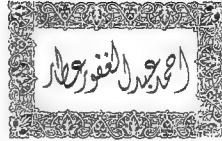 احمد عبد الغفور عطار